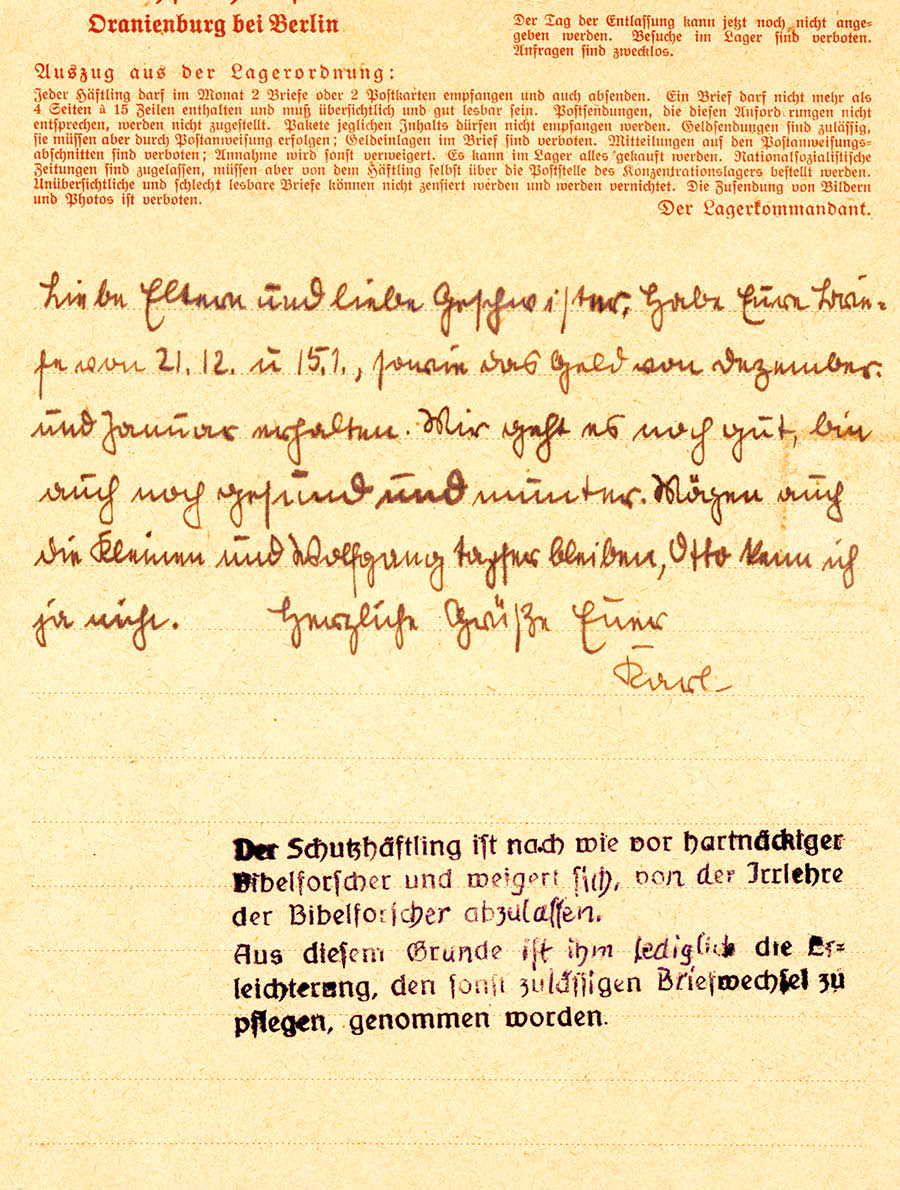 Oranienburg bei Berlin
Der Tag der Entlassung kann jetzt noch nicht ange=
geben werden. Besuche im Lager sind verboten.
Anfragen sind zwecklos.
Auszug aus der Lagerordnung:
Jeder Häftling darf im Monat 2 Briefe oder 2 Postkarten empfangen und auch absenden. Ein Brief darf nicht mehr als
4 Seiten à 15 Zeilen enthalten und muß übersichtlich und gut lesbar sein. Postsendungen, die diesen Anforderungen nicht
entsprechen, werden nicht zugestellt. Pakete jeglichen Inhalts dürfen nicht empfangen werden. Geldsendungen sind zulässig,
sie müssen aber durch Postanweisung erfolgen; Geldeinlagen im Brief sind verboten. Mitteilungen auf den Postanweisungs=
abschnitten sind verboten; Annahme wird sonst verweigert. Es kann im Lager alles gekauft werden. Nationalsozialistische
Zeitungen sind zugelassen, müssen aber von dem Häftling selbst über die Poststelle des Konzentrationslagers bestellt werden.
Unübersichtliche und schlecht lesbare Briefe können nicht zensiert werden und werden vernichtet. Die Zusendung von Bildern
und Photos ist verboten.
Der Lagerkommandant.
Liebe Eltern und liebe Geschwister, Habe Eure Brie=
fe von 21. 12. u 15.1., sowie das Geld von Dezember
und Januar erhalten. Mir geht es noch gut, bin
auch noch gesund und munter. Mögen auch
die Kleinen und Wolfgang tapfer bleiben, Otto kenn ich
ja nicht. Herzliche Grüße Euer
Karl
Der Schutzhäftling ist nach wie vor hartnäckiger
Bibelforscher und weigert sich, von der Irrlehre
der Bibelforscher abzulassen.
Aus diesem Grunde ist ihm lediglich die Er=
leichterung, den sonst zulässigen Briefwechsel zu
pflegen, genommen worden.